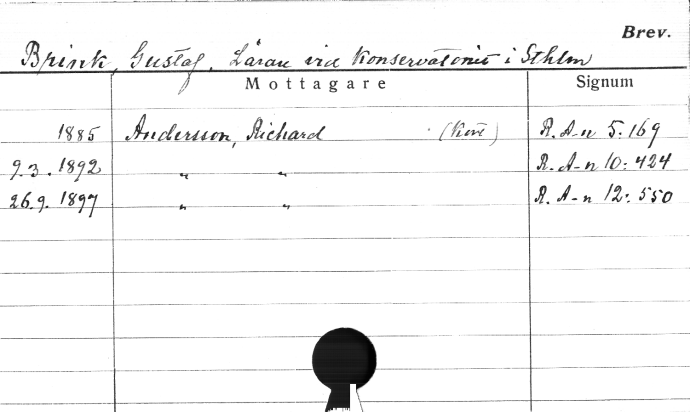 Brev.
Brink, Gustaf. Lärare vid Konservatoriet i Sthlm
Mottagare Signum
1885 Andersson, Richard R. A-n 5:169
9.3.1892 " " R. A-n 10:424
26.9.1897 " " R. A-n 12:550